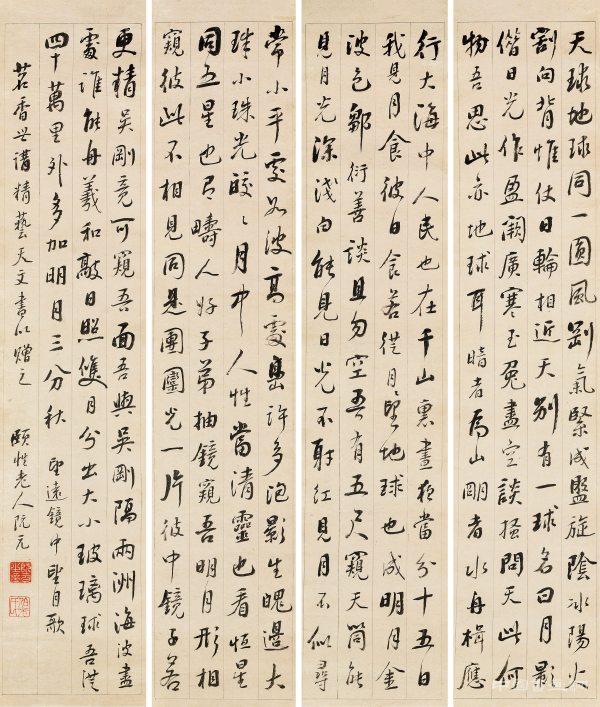 天球地球同一圓風剛氣緊成盤旋陰冰陽火
割向背惟仗日輪相近天別有一球名曰月影
借日光作盈闕廣寒玉兔盡空談搔問天此何
物吾思此亦地球耳暗者為山明者水舟楫應
行大海中人民也在千山裏晝夜當分十五日
我見月食彼日食若從月望地球也成明月金
波色鄒衍善談且勿空吾有五尺窺天筒能
見月光深淺白能見日光不射紅見月不似尋
常小平處如波高處島許多泡影生魄邊大
珠小珠光皎〻月中人性當清靈也看恒星
同五星也有疇人好子弟抽鏡窺吾明月形相
窺彼此不相見同是團圞光一片彼中鏡子若
更精吳剛竟可窺吾面吾與吳剛隔兩洲海波盡
處誰能舟羲和敲日照雙月分出大小玻璃球吾從
四十萬里外多加明月三分秋 望遠鏡中望月歌
茗香世講精藝天文書以贈之 頤性老人阮元